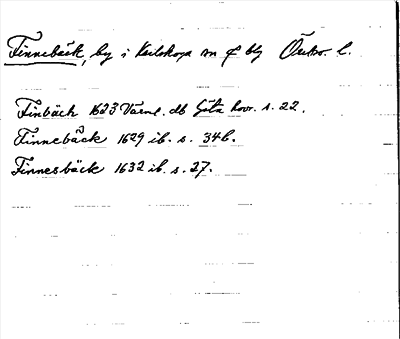 Finnebäck, by i Karlskoga sn o bg Örebro l.
Finbäch 1623 Värml. db Göta hovr. s. 22.
Finnebäck 1629 ib. s. 34b.
Finnesbäck 1632 ib. s. 27.